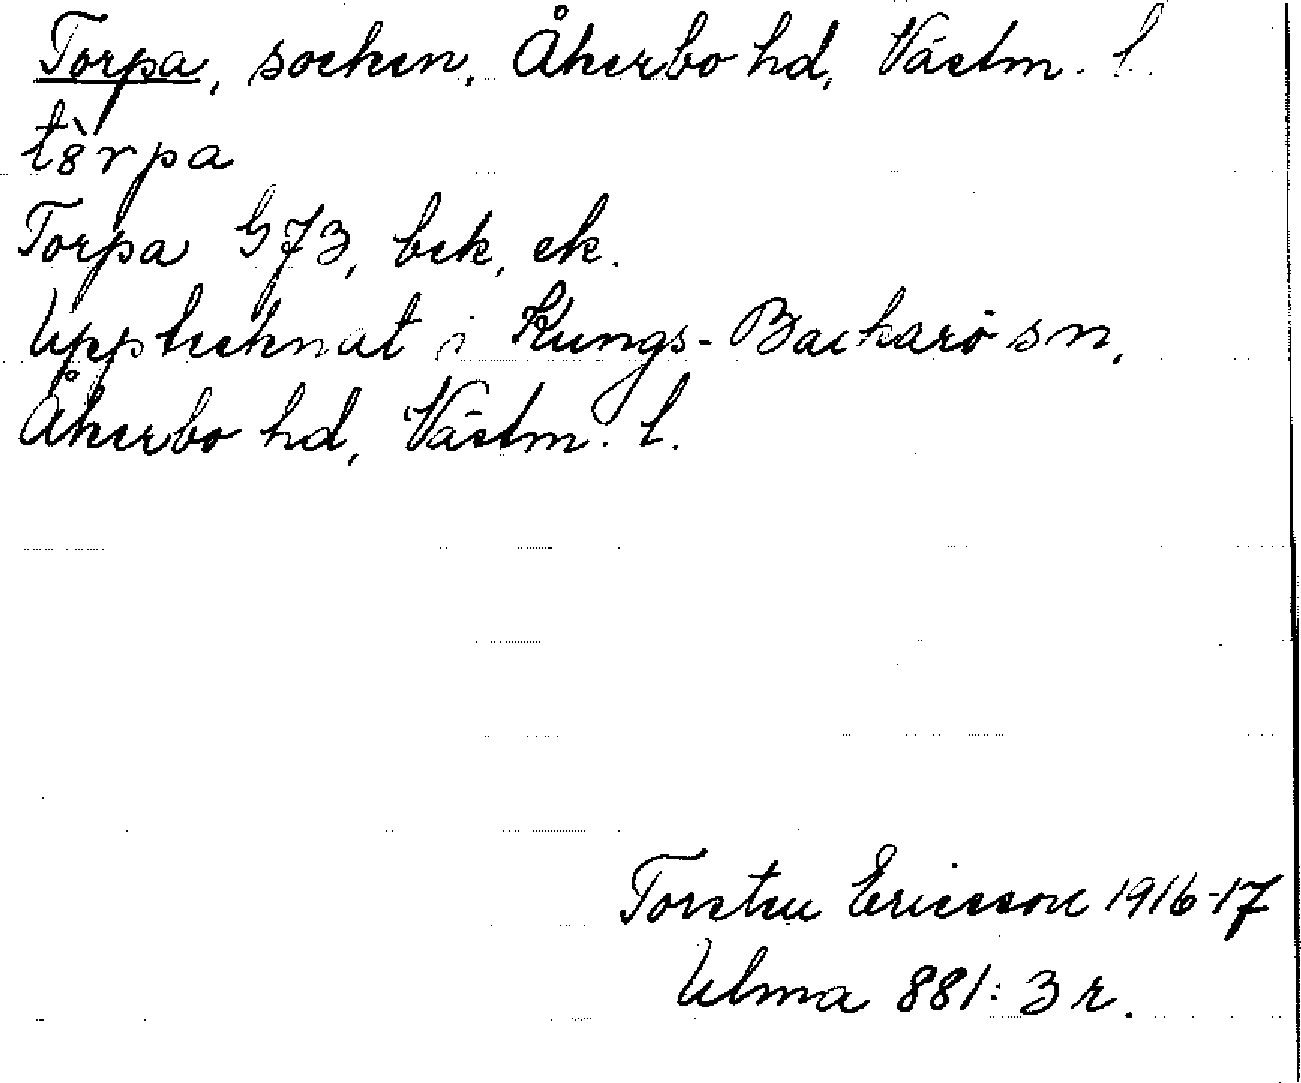 Torpa, socken, Åkerbo hd, Västm. l.
tòrpa
Torpa G73, bek, ek.
Upptecknat i Kungs-Barkarö sn,
Åkerbo hd, Västm. l.
Torsten Ericsson 1916-17
Ulma 881:3 r.